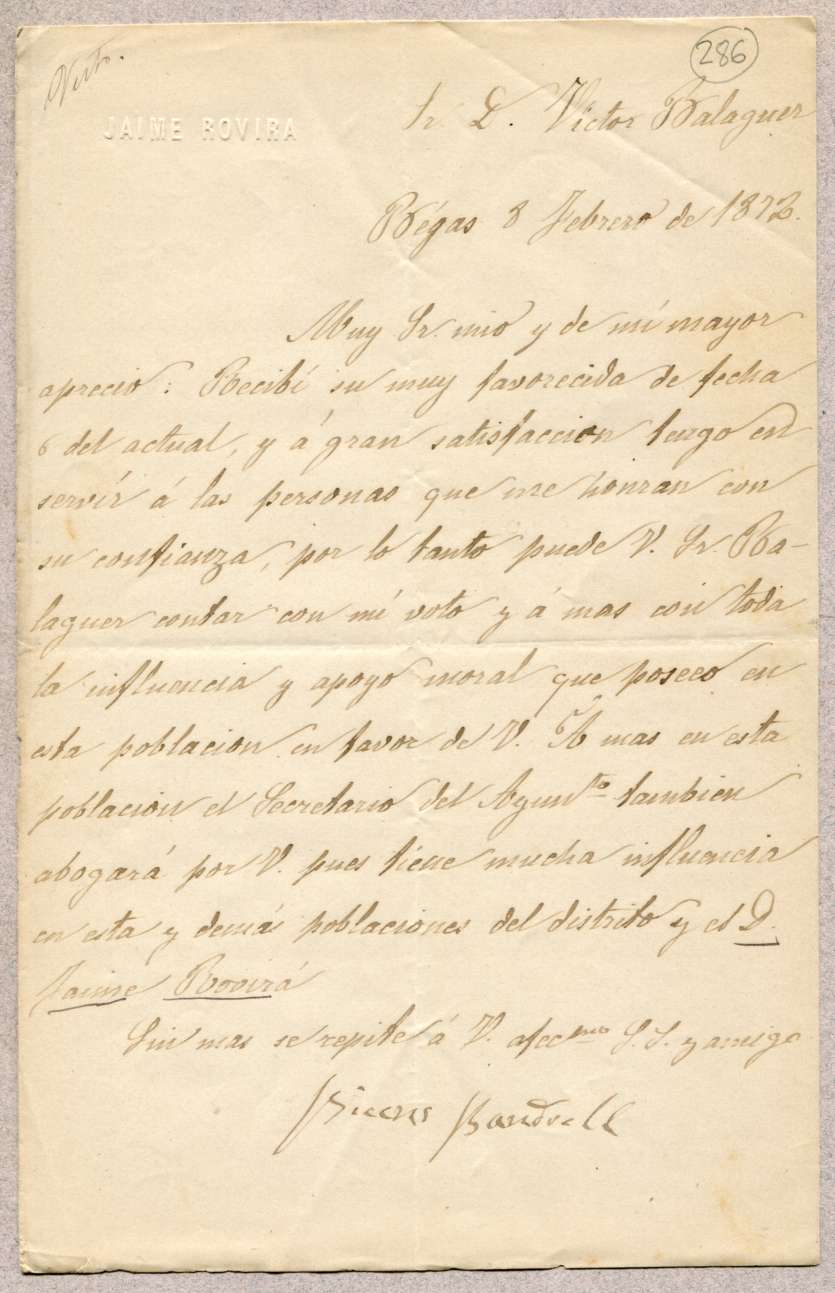 Visto.
286
JAIME ROVIRA
Sr. D. Victor Balaguer
Bégas 8 Febrero de 1872.
Muy Sr. mio y de mi mayor
aprecio: Recibí su muy favorecida de fecha
6 del actual, y á gran satisfaccion tengo en
servír á las personas que me honran con
su confianza, por lo tanto puede V. Sr. Ba-
laguer contar con mi voto y á mas con toda
la influencia y apoyo moral que poseeo en
esta poblacion en favor de V. A mas en esta
poblacion el Secretario del Ayunto. tambien
abogará por V. pues tiene mucha influencia
en esta y demás poblaciones del distrito y el D.
Jaime Rovirá
Sin mas se repite á V. afecmo S.S. y amigo